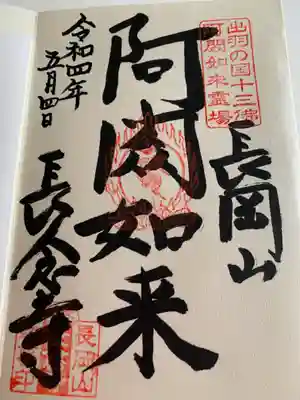 出羽の国十三佛
阿閦如来霊場
長岡山
阿閦如来
令和四年
五月四日
長念寺
長岡山
印